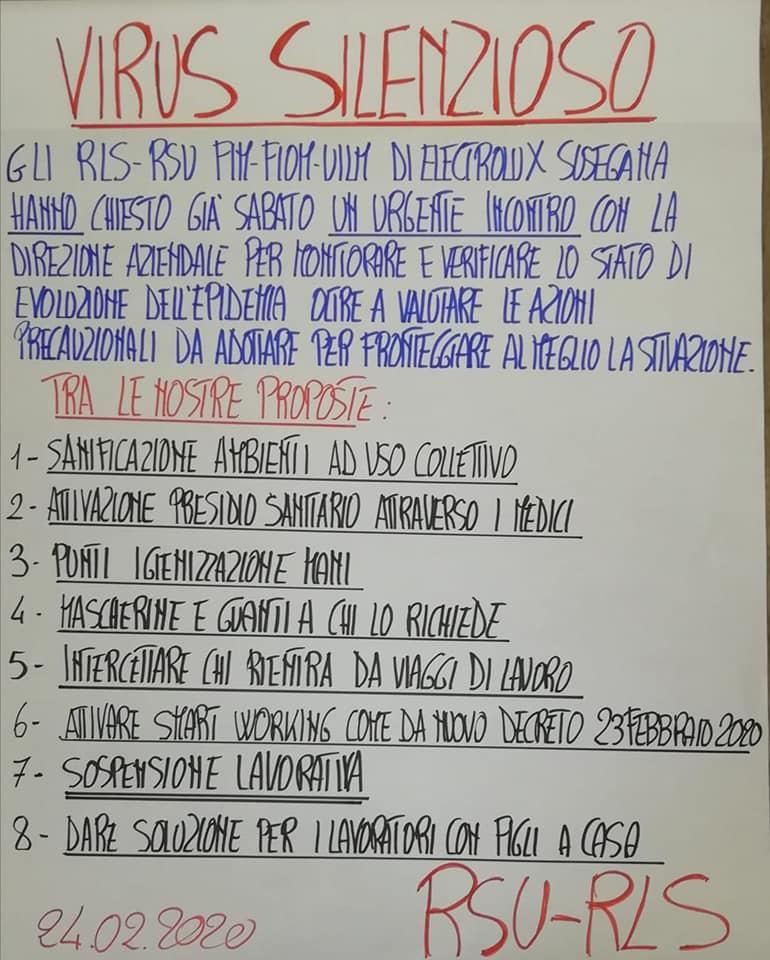 VIRUS SILENZIOSO
GLI RLS-RSU FIM-FIOM-UILM DI ELECTROLUX SUSEGANA
HANNO CHIESTO GIÀ SABATO UN URGENTE INCONTRO CON LA
DIREZIONE AZIENDALE PER MONITORARE E VERIFICARE LO STATO DI
EVOLUZIONE DELL'EPIDEMIA OLTRE A VALUTARE LE AZIONI
PRECAUZIONALI DA ADOTTARE PER FRONTEGGIARE AL MEGLIO LA SITUAZIONE.
TRA LE NOSTRE PROPOSTE:
1- SANIFICAZIONE AMBIENTI AD USO COLLETTIVO
2- ATTIVAZIONE PRESIDIO SANITARIO ATTRAVERSO I MEDICI
3- PUNTI IGIENIZZAZIONE MANI
4- MASCHERINE E GUANTI A CHI LO RICHIEDE
5- INTERCETTARE CHI RIENTRA DA VIAGGI DI LAVORO
6- ATTIVARE SMART WORKING COME DA NUOVO DECRETO 23 FEBBRAIO 2020
7- SOSPENSIONE LAVORATIVA
8- DARE SOLUZIONE PER I LAVORATORI CON FIGLI A CASA
RSU-RLS
24.02.2020